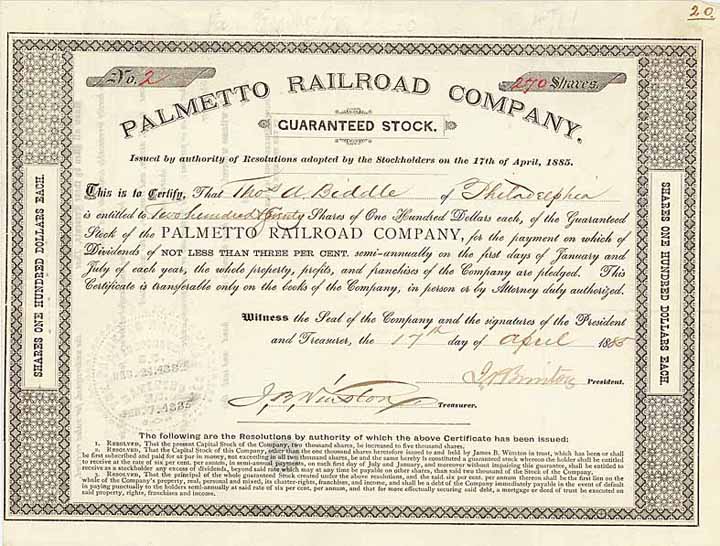 20
No. 2
270 Shares.
PALMETTO RAILROAD COMPANY.
GUARANTEED STOCK.
Issued by authority of Resolutions adopted by the Stockholders on the 17th of April, 1885.
This is to Certify, That Thos. A. Biddle of Philadelphia
is entitled to Two hundred & Seventy Shares of One Hundred Dollars each, of the Guaranteed
Stock of the PALMETTO RAILROAD COMPANY, for the payment on which of
Dividends of NOT LESS THAN THREE PER CENT. semi-annually on the first days of January and
July of each year, the whole property, profits, and franchises of the Company are pledged. This
Certificate is transferable only on the books of the Company, in person or by Attorney duly authorized.
Witness the Seal of the Company and the signatures of the President
and Treasurer, the 17th day of April 1885
President.
J. B. Winston Treasurer.
SHARES ONE HUNDRED DOLLARS EACH.
SHARES ONE HUNDRED DOLLARS EACH.
The following are the Resolutions by authority of which the above Certificate has been issued:
1. RESOLVED, That the present Capital Stock of the Company, two thousand shares, be increased to five thousand shares.
2. RESOLVED, That the Capital Stock of this Company, other than the one thousand shares heretofore issued to and held by James B. Winston in trust, which has been or shall
be first subscribed and paid for at par in money, not exceeding in all two thousand shares, be and the same hereby is constituted a guaranteed stock whereof the holder shall be entitled
to receive at the rate of six per cent. per annum, in semi-annual payments, on such first day of July and January, and moreover without impairing this guarantee, shall be entitled to
receive as a stockholder any excess of dividends, beyond said rate which may at any time be payable on other shares, than said two thousand of the Stock of the Company.
3. RESOLVED, That the principal of the whole guaranteed Stock created under the above resolutions, and the said six per cent. per annum thereon shall be the first lien on the
whole of the Company's property, real, personal and mixed, its charter-rights, franchises, and income, and shall be a debt of the Company immediately payable in the event of default
in paying punctually to the holders semi-annually at said rate of six per cent. per annum, and that for more effectually securing said debt, a mortgage or deed of trust be executed on
said property, rights, franchises and income.